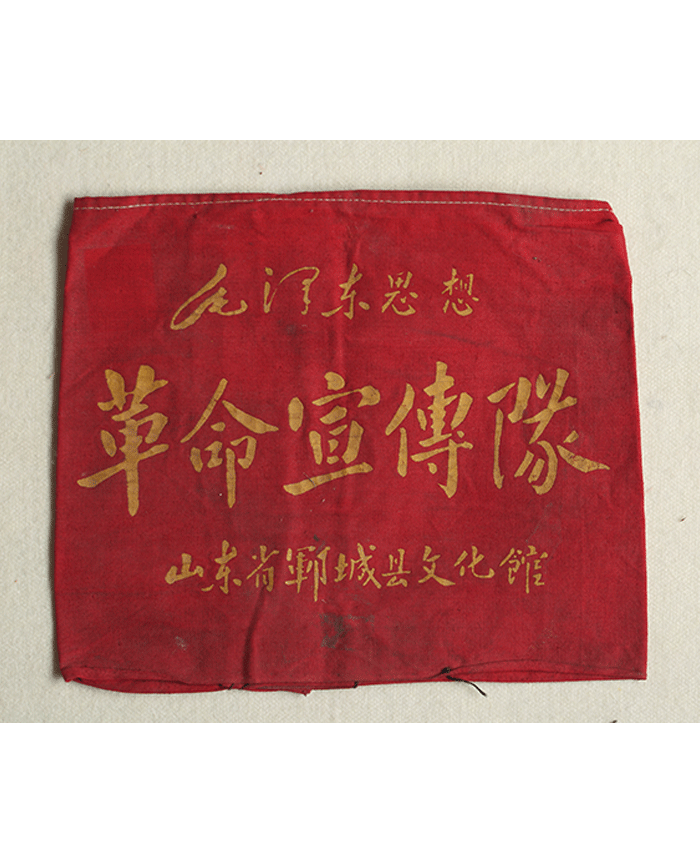 毛泽东思想
革命宣傳隊
山东省鄆城县文化館